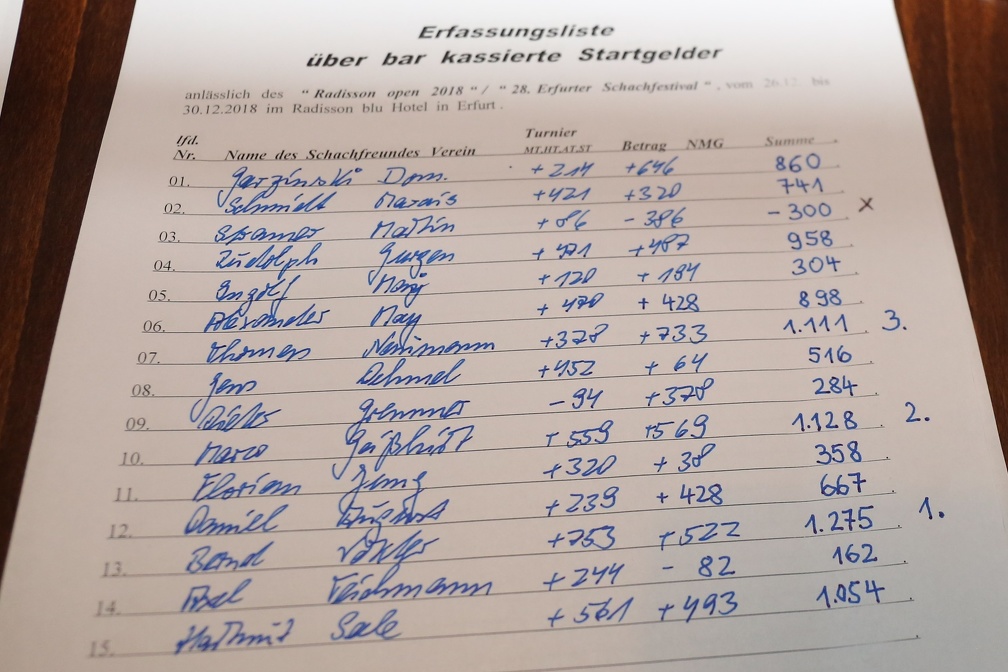 Erfassungsliste
über bar kassierte Startgelder
anlässlich des "Radisson open 2018"/ "28. Erfurter Schachfestival", vom 26.12. bis
30.12.2018 im Radisson blu Hotel in Erfurt.
lfd. Turnier
Nr. Name des Schachfreundes Verein MT,HT,AT,ST Betrag NMG Summe
01. Garzinski Dom. +214 +646 860
02. Schmidt +421 +320 741
03. Martin +86 -386 -300 x
04. Rudolph +471 +487 958
05. Ingolf +120 +184 304
06. Alexander May +470 +428 898
07. Thomas Neumann +378 +733 1.111 3.
08. Jens Dehmel +452 +64 516
09. -94 +378 284
10. Marco +559 +569 1.128 2.
11. Florian Jung +320 +38 358
12. Daniel +239 +428 667
13. Bernd +753 +522 1.275 1.
14. Axel Teichmann +244 -82 162
15. Hartmut Sale +561 +493 1.054